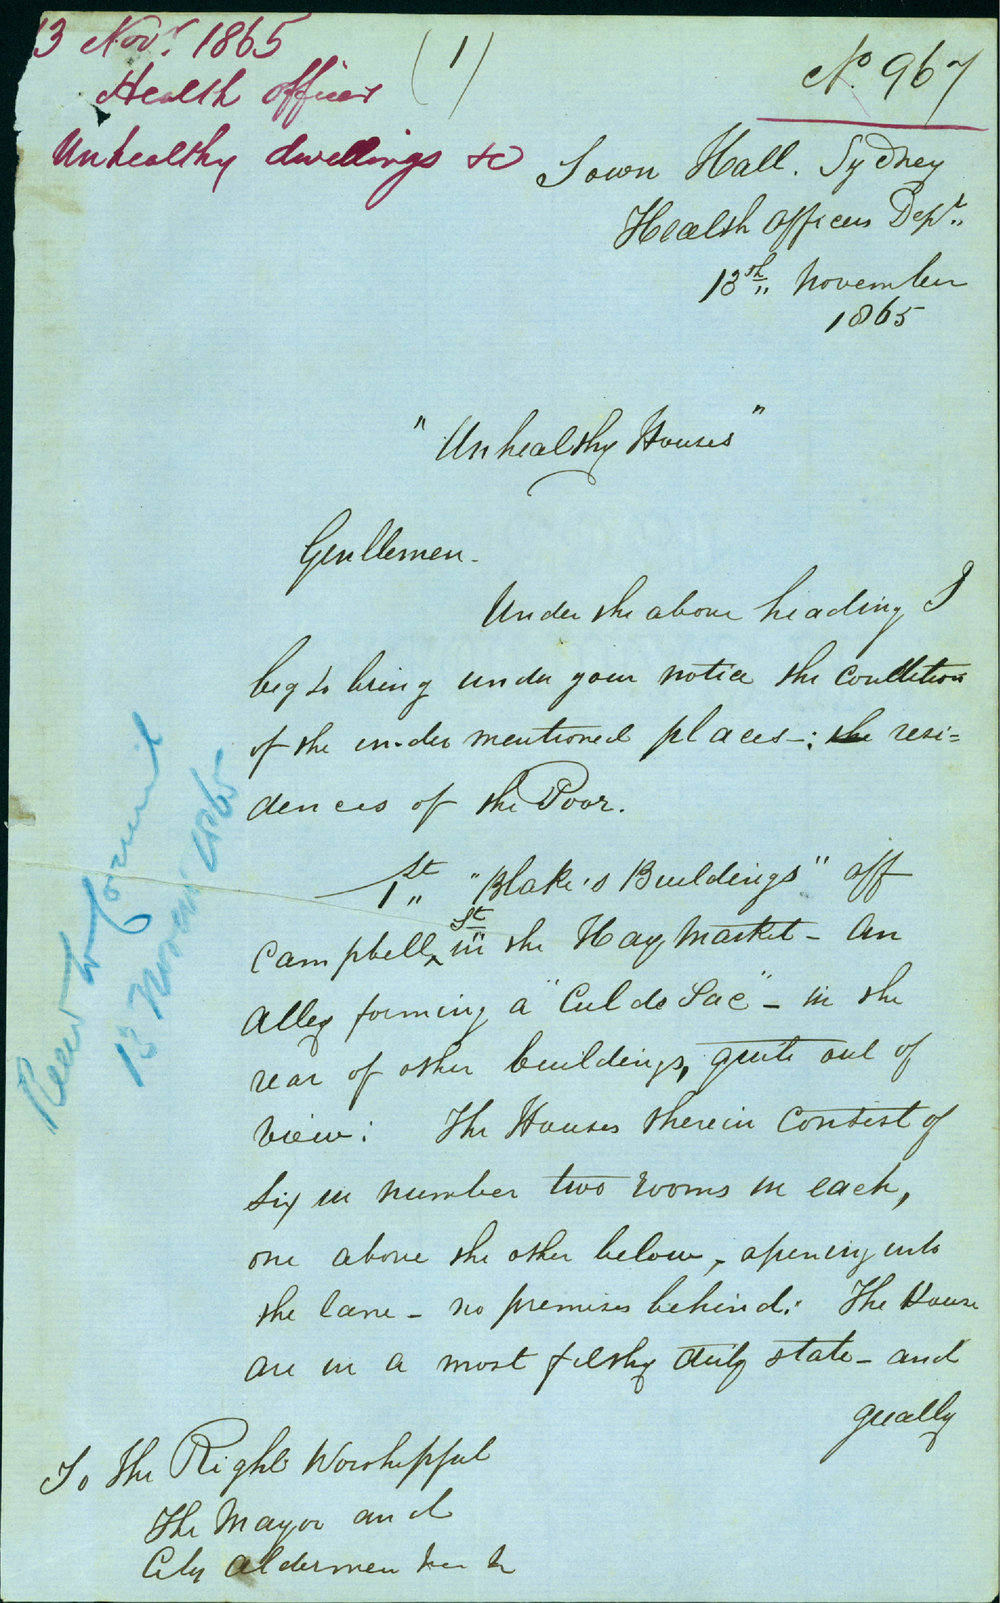 13 Novr. 1865
Health officer
Unhealthy dwellings &c
(1)
No. 967
Town Hall. Sydney
Health Officers Dept.
13th,, November
1865
"Unhealthy Houses"
Gentlemen.
Under the above heading I
beg to bring under your notice the condition
of the under mentioned places-: the resi=
dences of the Poor.
1st,, "Blake's Buildings" off
Campbell St in the Hay Market - An
Alley forming a "Cul de Sac" - in the
rear of other buildings, quite out of
view: The Houses therein consist of
Six in number two rooms in each,
one above the other below, opening into
the lane - no premises behind: The House
are in a most filthy dirty state - and
greatly
To The Right Worshipful
The Mayor and
City Aldermen &c &c
13 Novem 1865